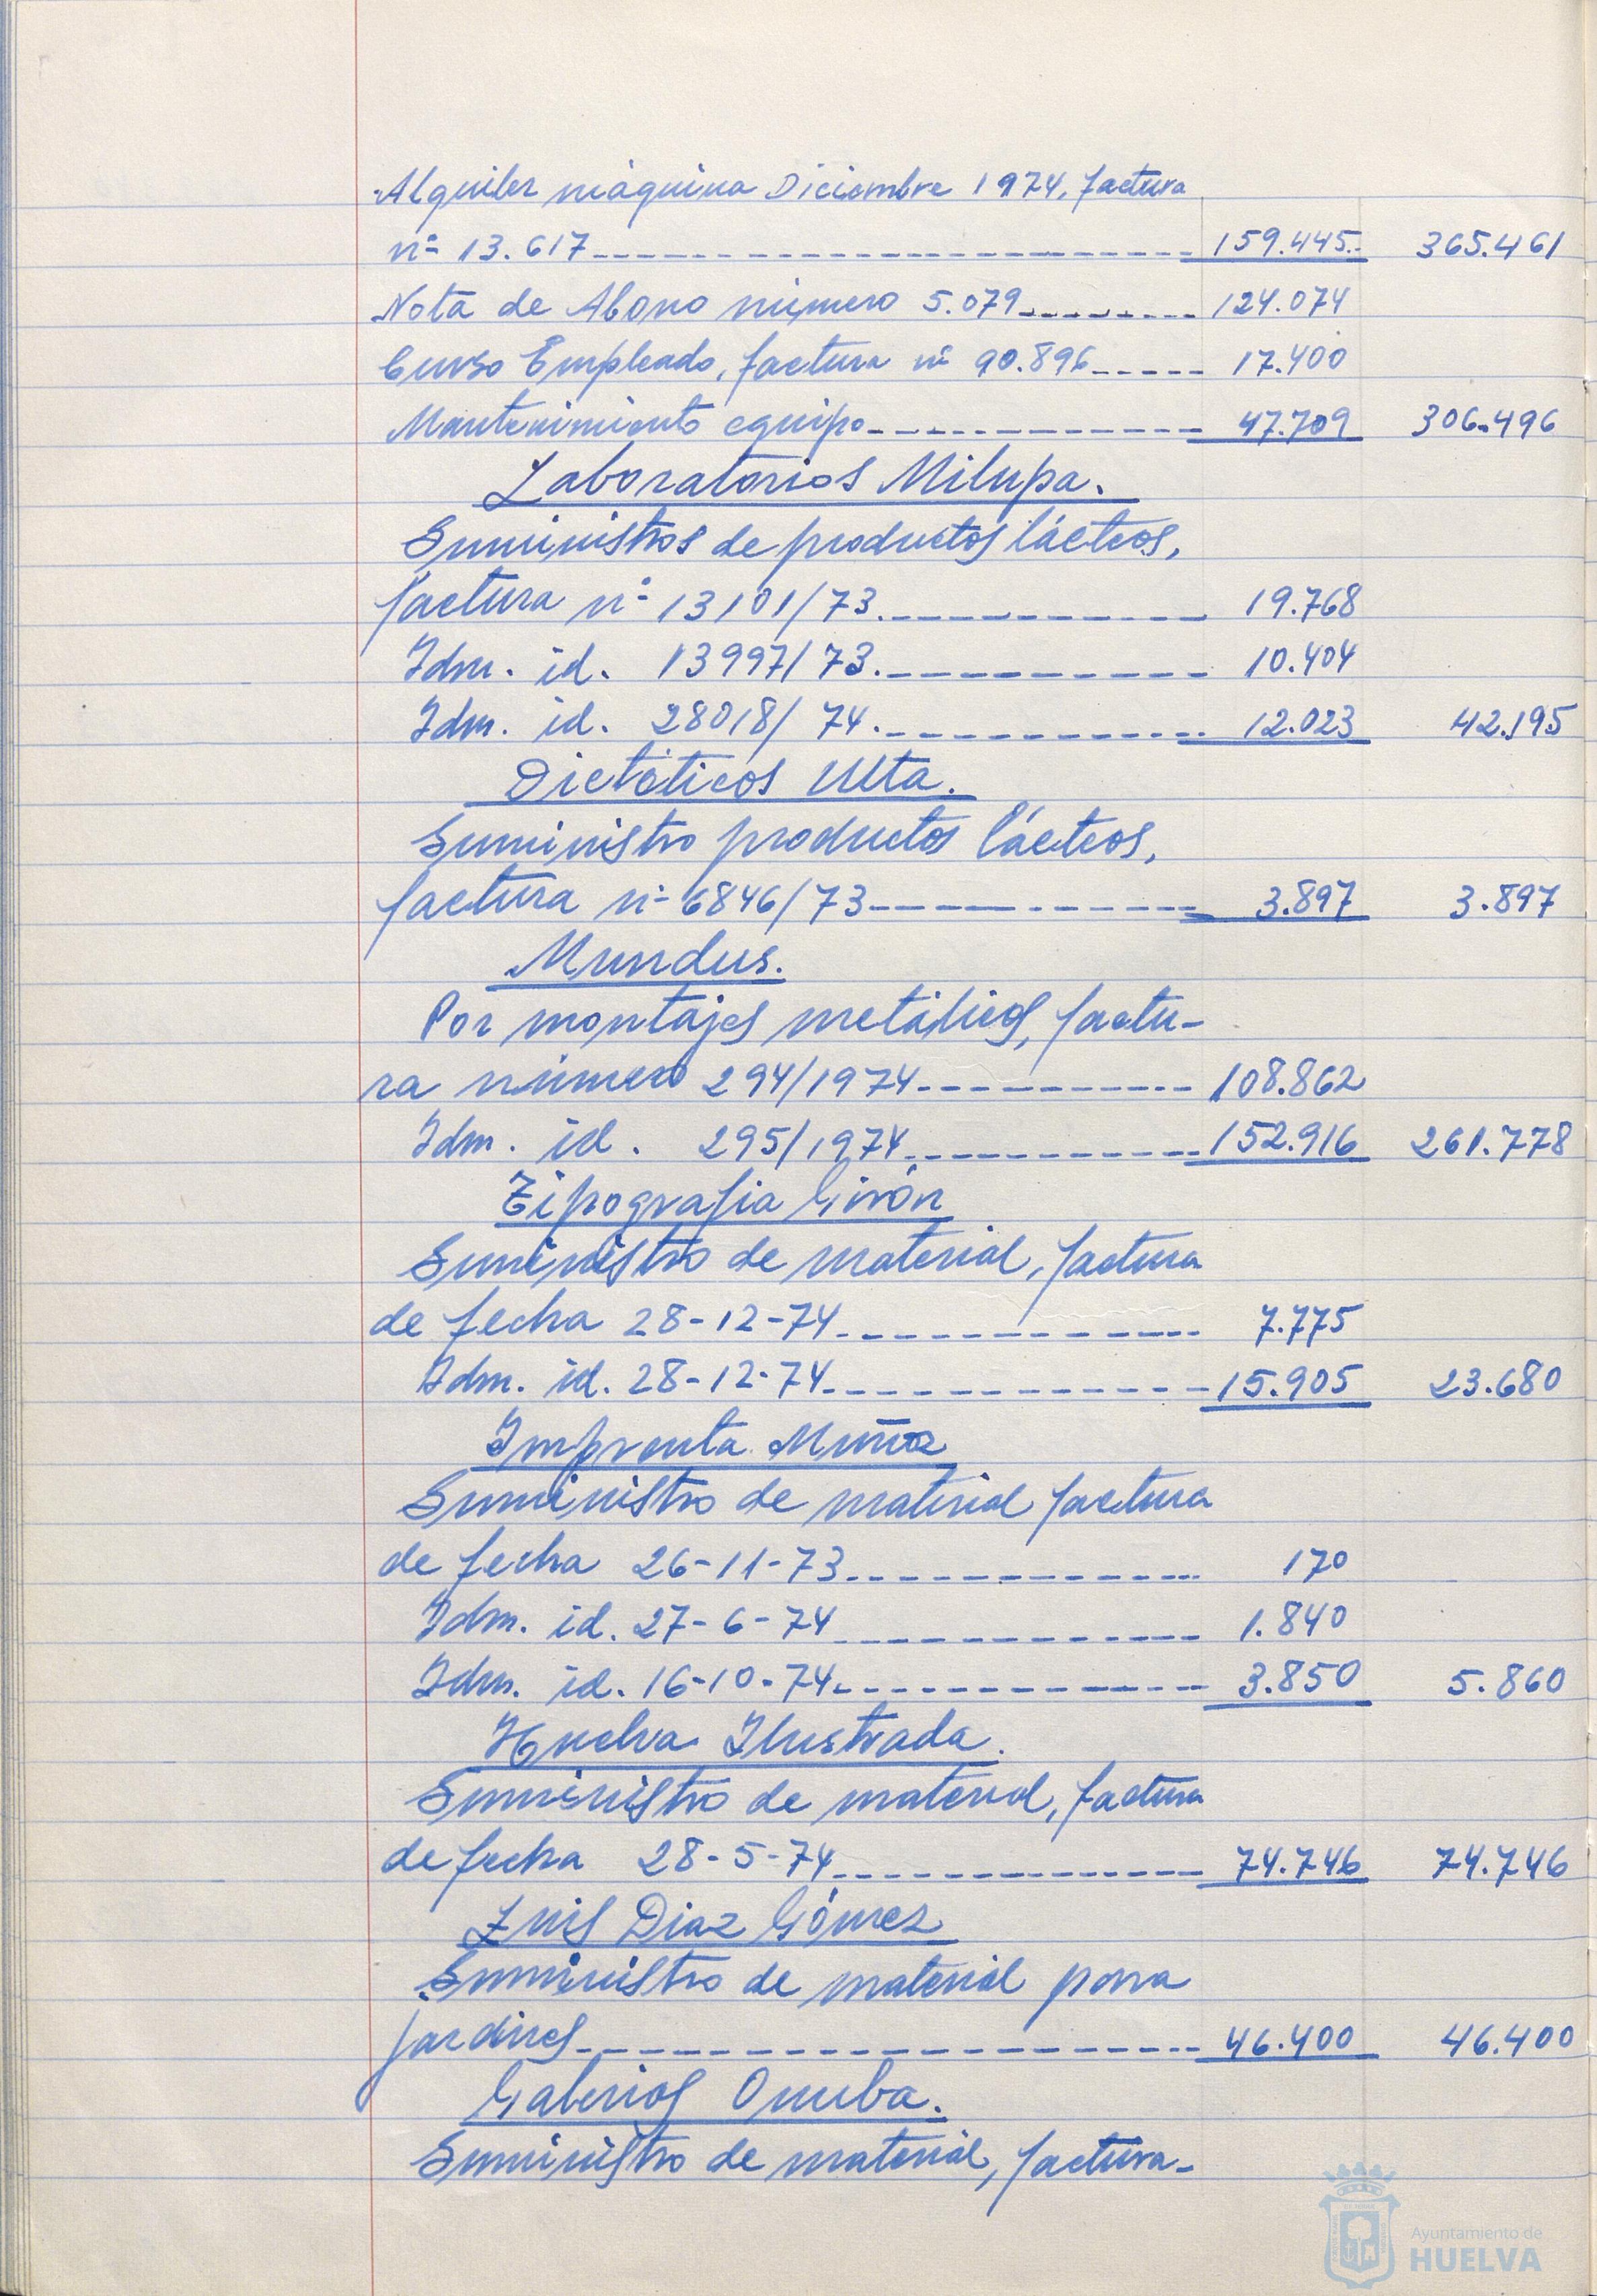 Alquiler máquina Diciembre 1974, factura
nº 13.617 159.445 365.461
Nota de Abono número 5.079 124.074
Curso Empleado, factura nº 90.896 17.400
Mantenimiento equipo 47.709 306.496
Laboratorios Milupa.
Suministros de productos lácteos,
factura nº 13101/73 19.768
Idm. id. 13997/73 10.404
Idm. id. 28018/74 12.023 42.195
Dietéticos Ulta.
Suministro productos lácteos,
factura nº 6846/73 3.897 3.897
Mundus.
Por montajes metálicos, factu-
ra número 294/1974 108.862
Idm. id. 295/1974 152.916 261.778
Tipografia Girón
Suministro de material, factura
de fecha 28-12-74 7.775
Idm. id. 28-12-74 15.905 23.680
Imprenta Muñoz
Suministro de material factura
de fecha 26-11-73 170
Idm. id. 27-6-74 1.840
Idm. id. 16-10-74 3.850 5.860
Huelva Ilustrada.
Suministro de material, factura
de fecha 28-5-74 74.746 74.746
Luis Diaz Gómez
Suministro de material para
jardines 46.400 46.400
Galerias Onuba.
Suministro de material, factura-
Ayuntamiento de
HUELVA